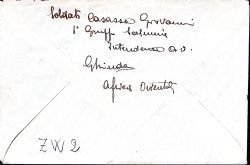 Soldato Casassa Giovanni
1° Gruppo Salmerie
Intendenza A.O.
Ghinda
Africa Orientale
ZW2